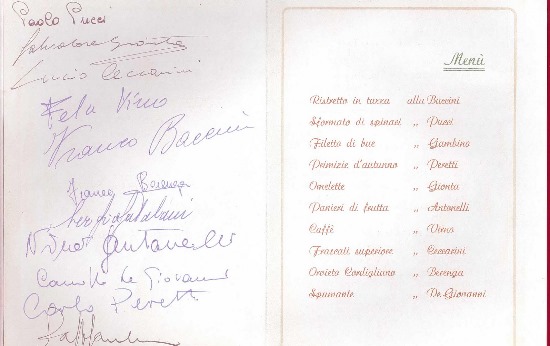 Paolo Pucci
Salvatore Gionta
Lucio Ceccarini
Fela Vino
Franco Baccini
Franco Berenga
Nino Antonelli
Camillo De Giovanni
Carlo Peretti
Menù
Ristretto in tazza alla Baccini
Sformato di spinaci „ Pucci
Filetto di bue „ Gambino
Primizie d'autunno „ Peretti
Omelette „ Gionta
Panieri di frutta „ Antonelli
Caffè „ Virno
Frascati superiore „ Ceccarini
Orvieto Cordigliano „ Berenga
Spumante „ De Giovanni